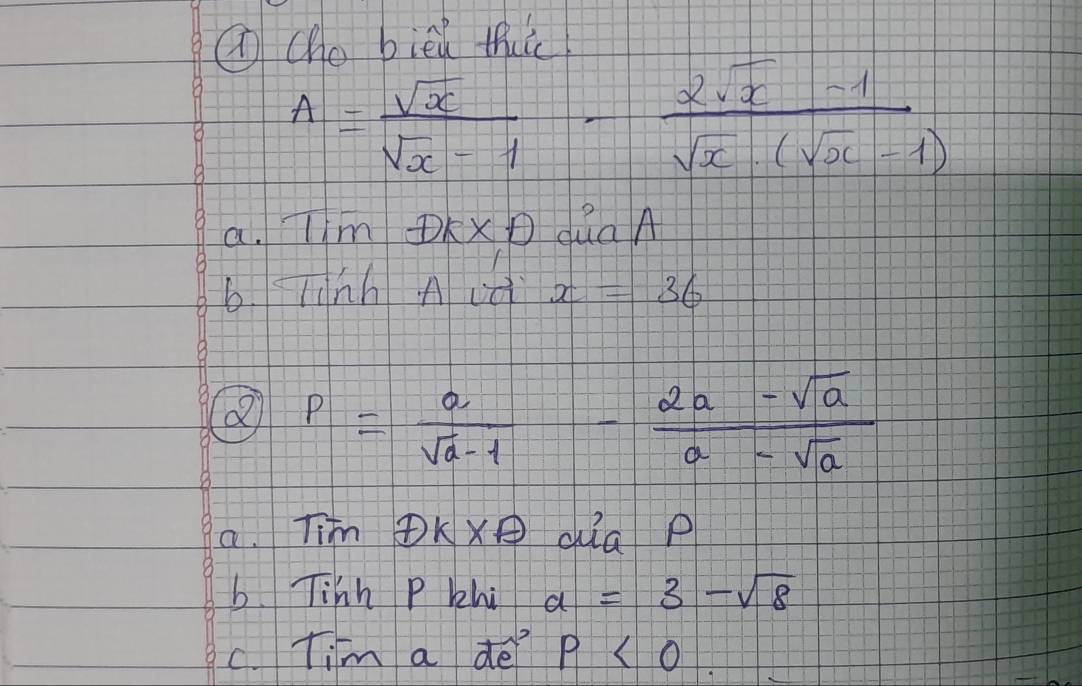 ① Cho biểu thức
A = √x / (√x - 1) - (2√x - 1) / (√x . (√x - 1))
a. Tìm ĐKXĐ của A
b. Tính A với x = 36
② P = a / (√a - 1) - (2a - √a) / (a - √a)
a. Tìm ĐKXĐ của P
b. Tính P khi a = 3 - √8
c. Tìm a để P < 0.